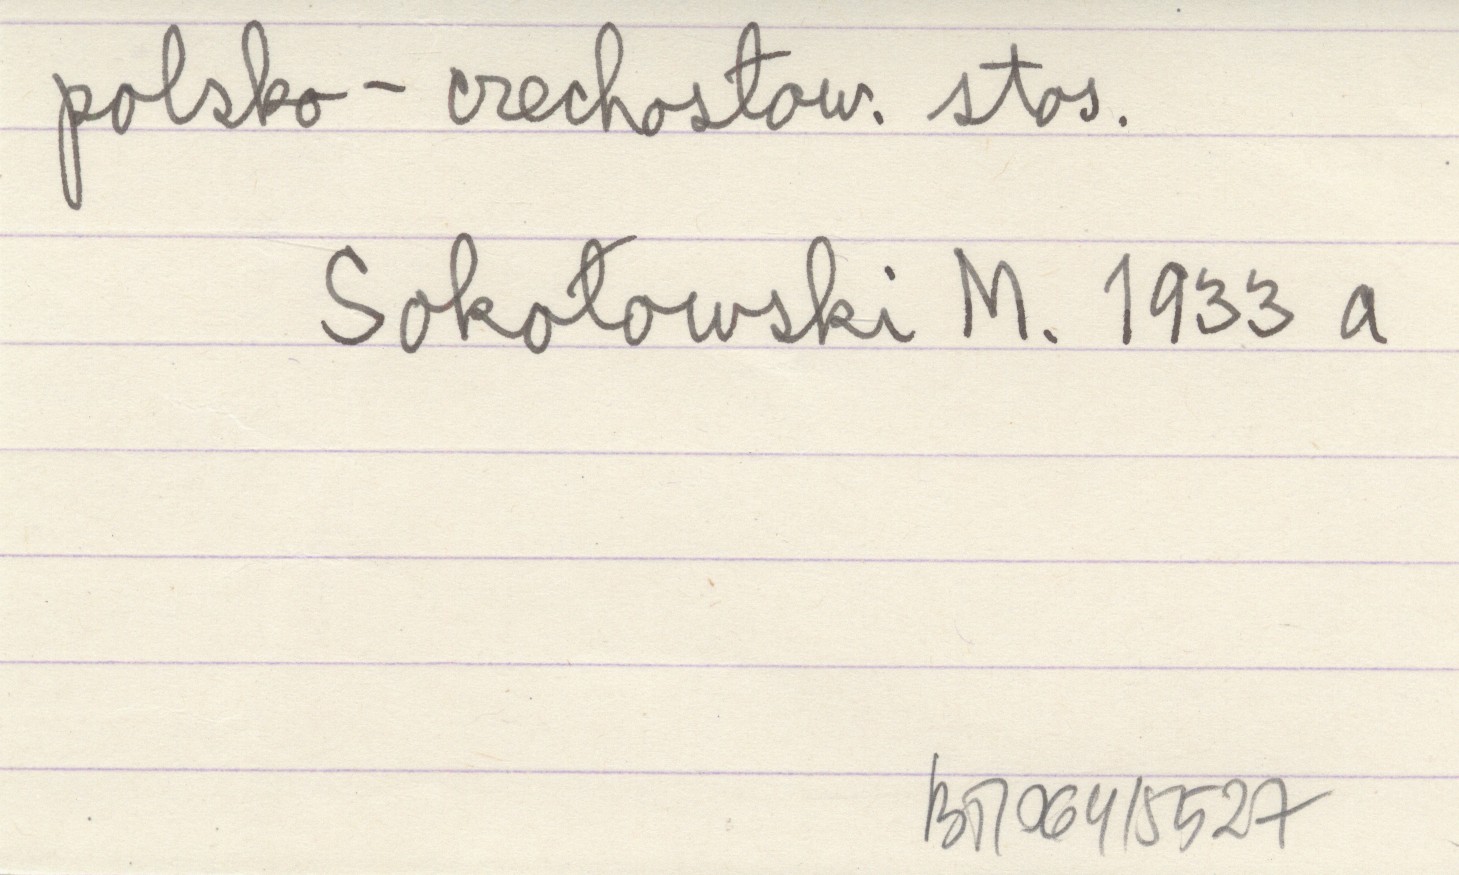 polsko - czechosłow. stos.
Sokołowski M. 1933 a